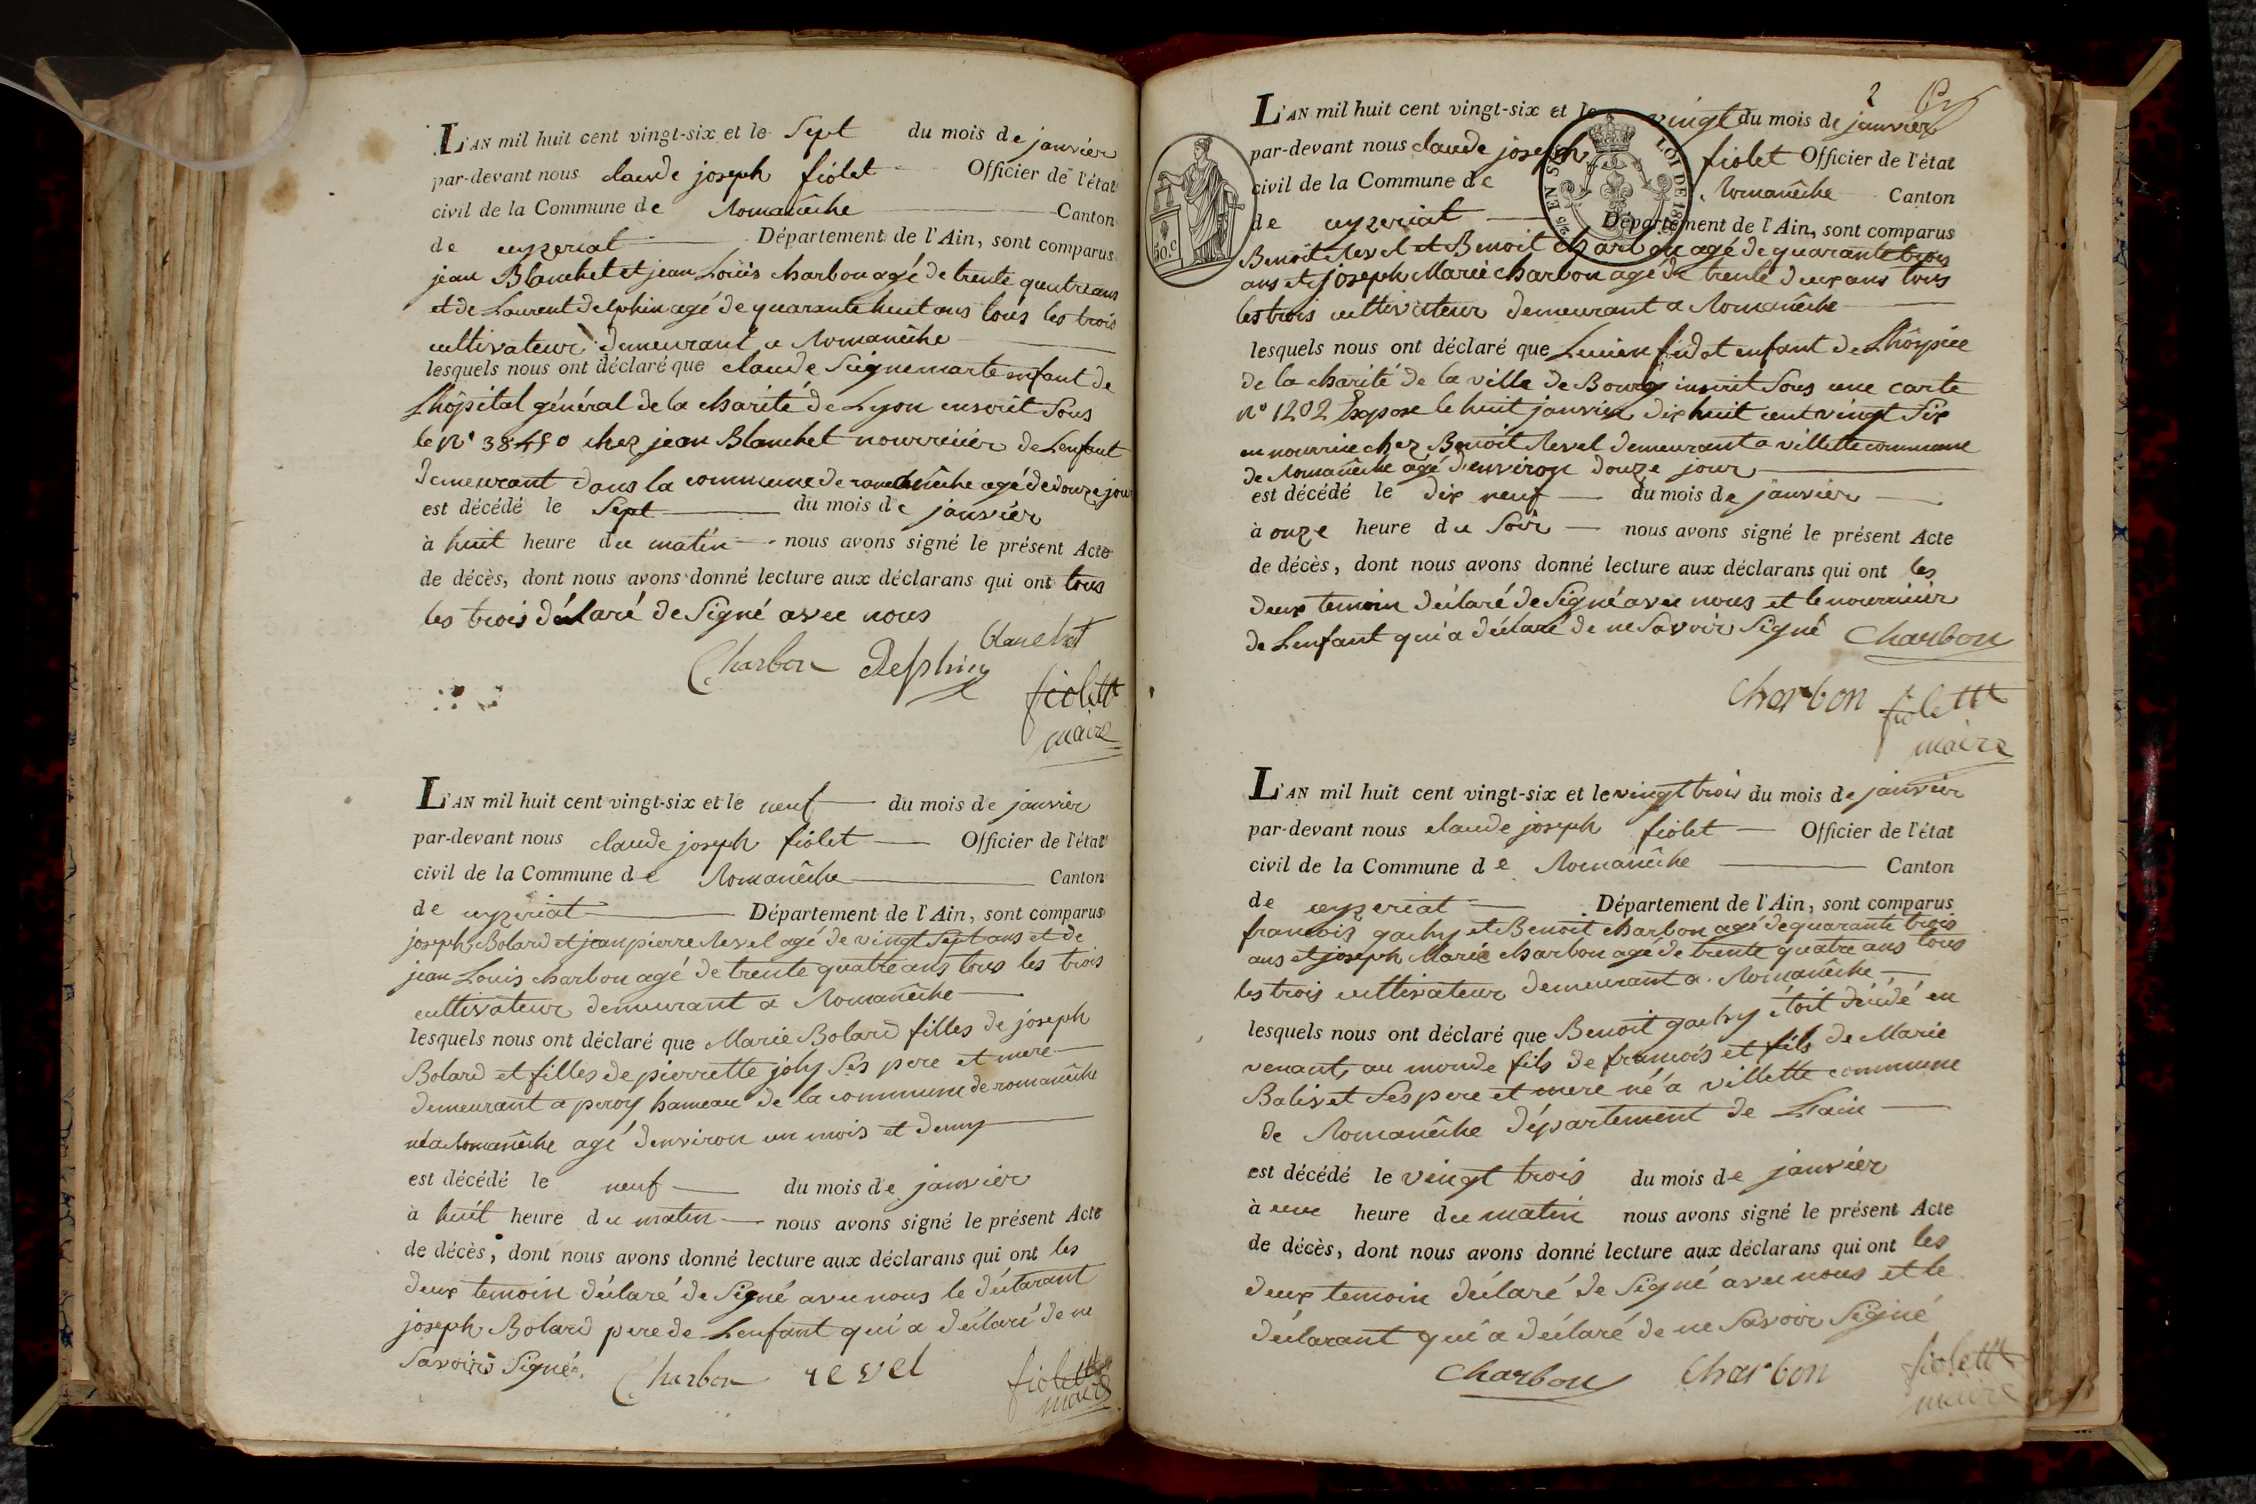 L'AN mil huit cent vingt-six et le Sept du mois de janvier
par-devant nous claude joseph fiolet Officier de l'état
civil de la Commune de Romanêche Canton
de ceyzeriat Département de l'Ain, sont comparus
jean Blanchet et jean Louis charbon agé de trente quatre ans
et de Laurent delphin agé de quarante huit ans tous les trois
cultivateur demeurant a Romanêche
lesquels nous ont déclaré que claude Seignemarte enfant de
Lhôpital général de la charité de Lyon enscrit Sous
le N° 38450 chez jean Blanchet nourricier de Lenfant
demeurant dans la commune de romanêche agé de douze jour
est décédé le Sept du mois de janvier
à huit heure du matin nous avons signé le présent Acte
de décès, dont nous avons donné lecture aux déclarans qui ont tous
les trois déclaré de Signé avec nous
blanchet
Charbon Delphin
fiolett
maire
L'AN mil huit cent vingt-six et le neuf du mois de janvier
par-devant nous claude joseph fiolet Officier de l'état
civil de la Commune de Romanêche Canton
de ceyzeriat Département de l'Ain, sont comparus
joseph Bolard et jean pierre Revel agé de vingt Sept ans et de
jean Louis charbon agé de trente quatre ans tous les trois
cultivateur demeurant a Romanêche
lesquels nous ont déclaré que Marie Bolard filles de joseph
Bolard et filles de pierrette joly Ses pere et mere
demeurant a peroy hameau de la commune de romanêche
né a Romanêche agé denviron un mois et demy
est décédé le neuf du mois de janvier
à huit heure du matin nous avons signé le présent Acte
de décès, dont nous avons donné lecture aux déclarans qui ont les
deux temoin déclaré de Signé avec nous le déclarant
joseph Bolard pere de Lenfant qui a déclaré de ne
Savoir Signé. Charbon revel fiolett
maire
2
L'AN mil huit cent vingt-six et le vingt du mois de janvier
par-devant nous claude joseph fiolet Officier de l'état
civil de la Commune de Romanêche Canton
de ceyzeriat Département de l'Ain, sont comparus
50.c
LOI DE
Benoit Revel et Benoit charbon agé de quarante trois
ans et joseph Marie charbon agé de trente deux ans tous
les trois cultivateur demeurant a Romanêche
lesquels nous ont déclaré que Lucien fidot enfant de Lhôspice
de la charité de la ville de Bourg inscrit Sous une carte
N° 1202 Exposé le huit janvier dix huit cent vingt Six
en nourrice chez Benoit Revel demeurant a villette commune
de Romanêche agé d'environ douze jour
est décédé le dix neuf du mois de janvier
à onze heure du Soir nous avons signé le présent Acte
de décès, dont nous avons donné lecture aux déclarans qui ont les
deux temoin déclaré de Signé avec nous et le nourricier
de Lenfant qui a déclaré de ne Savoir Signé Charbon
charbon fiolett
maire
L'AN mil huit cent vingt-six et le vingt trois du mois de janvier
par-devant nous claude joseph fiolet Officier de l'état
civil de la Commune de Romanêche Canton
de ceyzeriat Département de l'Ain, sont comparus
francois gachy et Benoit charbon agé de quarante trois
ans et joseph Marie charbon agé de trente quatre ans tous
les trois cultivateur demeurant a Romanêche
lesquels nous ont déclaré que Benoit gachy étoit décédé en
venant au monde fils de francois et fils de Marie
Balivet Ses pere et mere né a villette commune
de Romanêche département de Lain
est décédé le vingt trois du mois de janvier
à une heure du matin nous avons signé le présent Acte
de décès, dont nous avons donné lecture aux déclarans qui ont les
deux temoin déclaré de Signé avec nous et le
déclarant qui a déclaré de ne Savoir Signé
Charbon charbon fiolett
maire